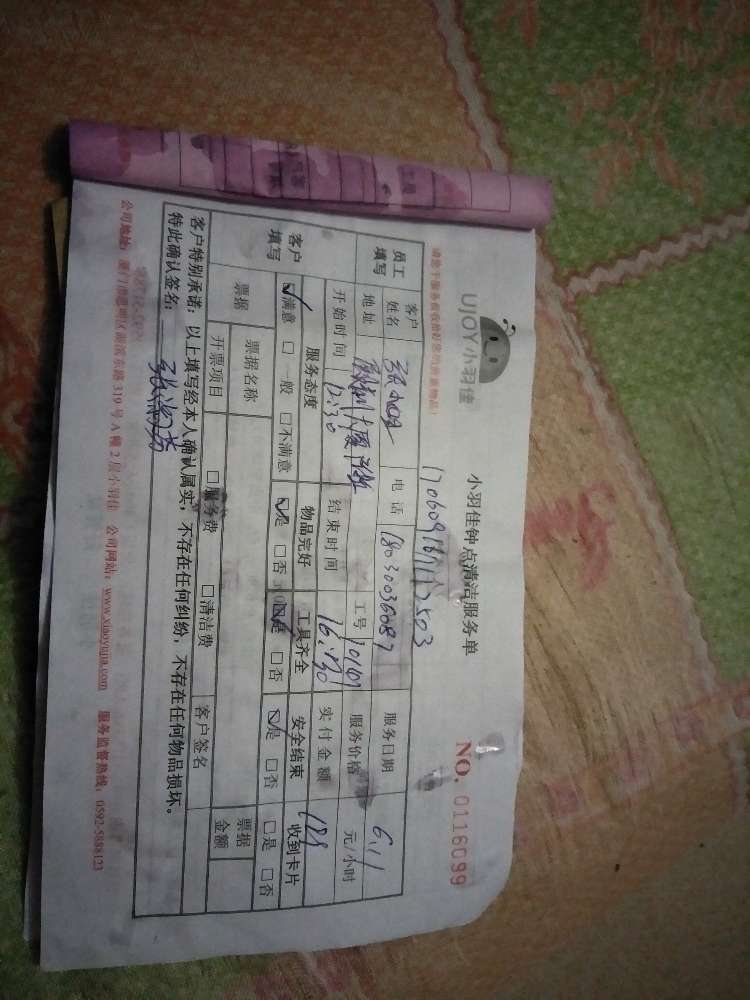 UJOY小羽佳
小羽佳钟点清洁服务单
NO. 0116099
员工填写
客户姓名
电话 18030036087
服务日期 6.11
地址
工号
服务价格 元/小时
开始时间 12:30
结束时间 16:30
实付金额
客户填写
服务态度 物品完好 工具齐全 安全结束 收到卡片
☑满意 □一般 □不满意 ☑是 □否 ☑是 □否 ☑是 □否 □是 □否
票据 票据名称 票据金额
开票项目 □服务费 □清洁费 客户签名
客户特别承诺:以上填写经本人确认属实,不存在任何纠纷,不存在任何物品损坏。
特此确认签名:
公司地址:厦门湖思明区湖滨东路319号A幢2层小羽佳 公司网站:www.xiaoyujia.com 服务监督热线:0592-5888123